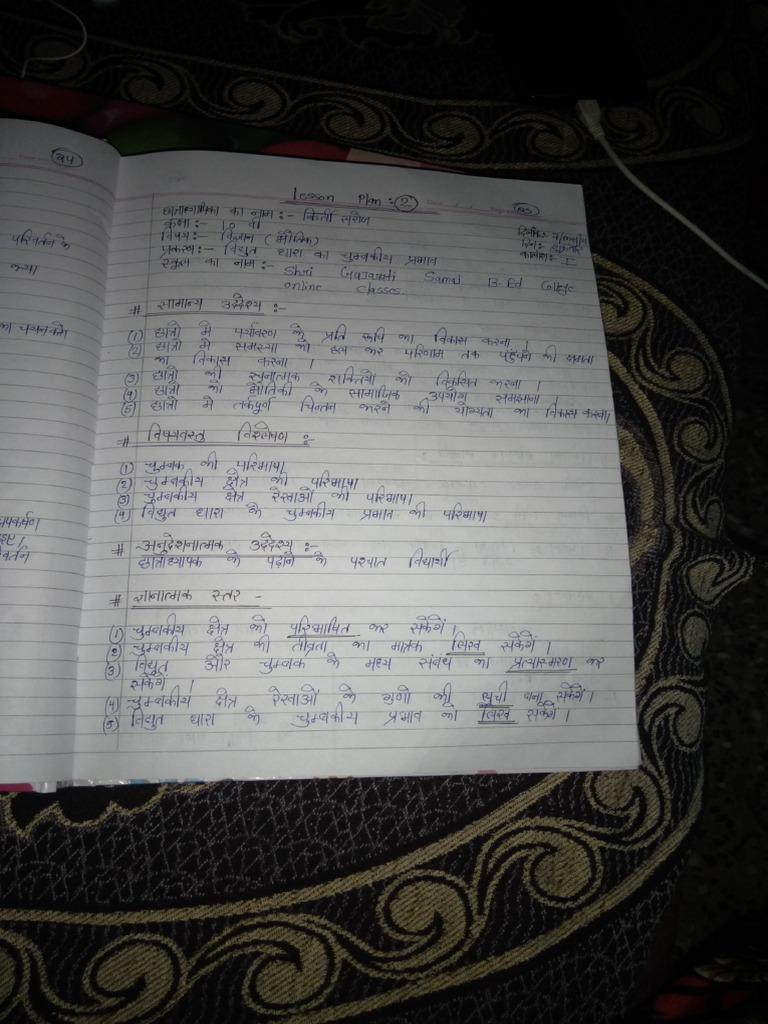 24
परिवर्तन के
Lesson Plan :- 2
25
छात्राध्यापिका का नाम :- किर्ती सरोज
कक्षा :- 10 वी
विषय :- विज्ञान (भौतिकी)
प्रकरण :- विद्युत धारा का चुम्बकीय प्रभाव
स्कूल का नाम :- Shri B.Ed College
online classes.
दिनांक:
दिन:
कालांश:- I
# सामान्य उद्देश्य :-
(1) छात्रो मे पर्यावरण के प्रति रूचि का विकास करना।
(2) छात्रो मे समस्या को हल कर परिणाम तक पहुंचने की क्षमता
का विकास करना।
(3) छात्रो की सृजनात्मक शक्तियों को विकसित करना।
(4) छात्रो को भौतिकी के सामाजिक उपयोग समझाना
(5) छात्रो मे तर्कपूर्ण चिन्तन करने की योग्यता का विकास करना
# विषयवस्तु विश्लेषण :-
(1) चुम्बक की परिभाषा
(2) चुम्बकीय क्षेत्र की परिभाषा
(3) चुम्बकीय क्षेत्र रेखाओं की परिभाषा
(4) विद्युत धारा के चुम्बकीय प्रभाव की परिभाषा
# अनुदेशनात्मक उद्देश्य :-
छात्राध्यापक के पढ़ाने के पश्चात विद्यार्थी
# ज्ञानात्मक स्तर -
(1) चुम्बकीय क्षेत्र को परिभाषित कर सकेंगें।
(2) चुम्बकीय क्षेत्र की तीव्रता का मात्रक लिख सकेंगें।
(3) विद्युत और चुम्बक के मध्य संबंध का प्रत्यास्मरण कर
सकेंगें।
(4) चुम्बकीय क्षेत्र रेखाओं के गुणो की सूची बना सकेंगें।
(5) विद्युत धारा के चुम्बकीय प्रभाव को लिख सकेंगें।